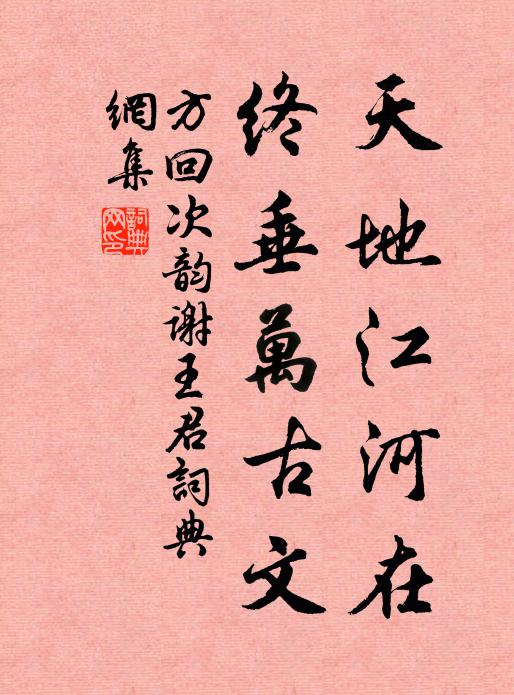 天地江河在
終垂萬古文
方回次韵謝王君詞典
網集
詞典網印